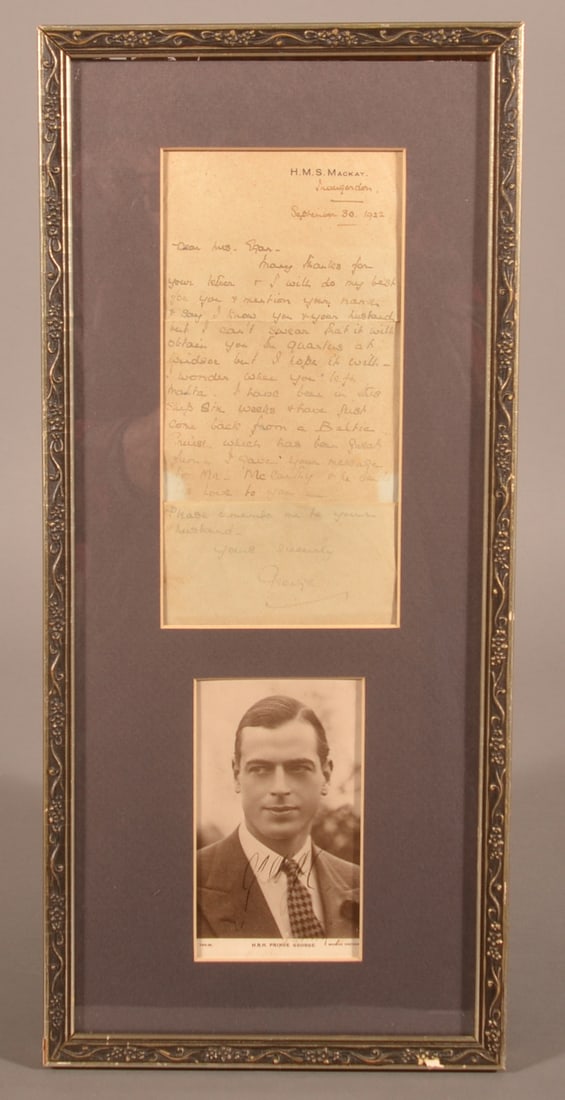 H.M.S. MACKAY.
Invergordon.
September 30. 1922
Dear Mrs.
Many thanks for
your letter & I will do my best
for you & mention your names
& say I know you & your husband
but I can't swear that it will
obtain you the quarters at
Windsor but I hope it will -
I wonder when you left
Malta. I have been in this
ship six weeks & have just
come back from a Baltic
Cruise which has been great
I gave your message
to Mr. McCarthy & he
love to you
Please remember me to your
husband -
Yours sincerely
George
H.R.H. PRINCE GEORGE